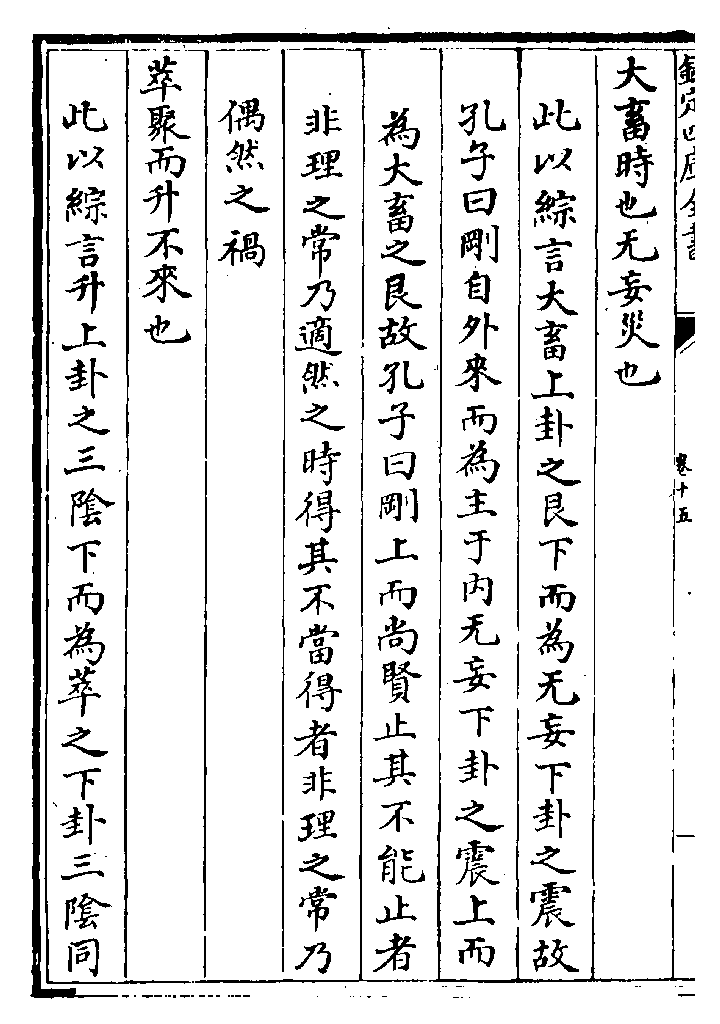 欽定四庫全書
卷十五
大畜時也无妄災也
此以綜言大畜上卦之艮下而為无妄下卦之震故
孔子曰剛自外來而為主于内无妄下卦之震上而
為大畜之艮故孔子曰剛上而尚賢止其不能止者
非理之常乃適然之時得其不當得者非理之常乃
偶然之禍
萃聚而升不來也
此以綜言升上卦之三隂下而為萃之下卦三隂同